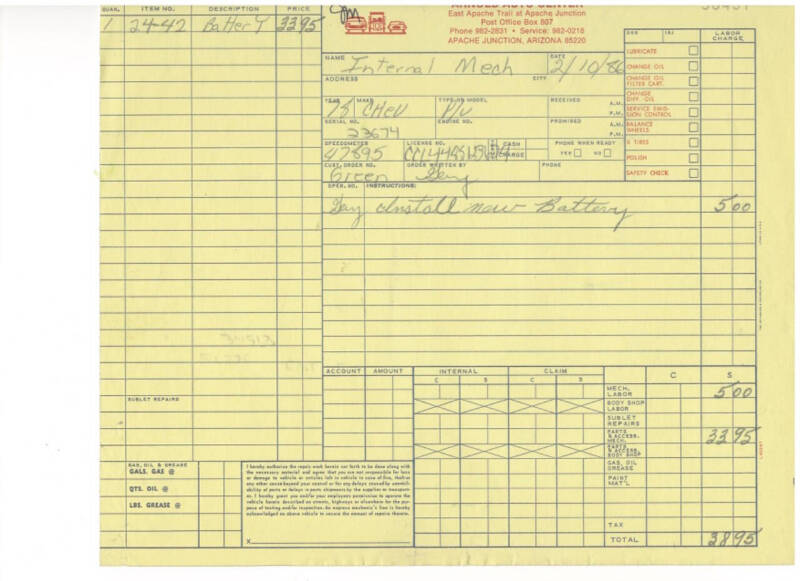 QUAN. ITEM NO. DESCRIPTION PRICE
1 24-42 Battery 33 95
ARNOLD AUTO CENTER
East Apache Trail at Apache Junction
Post Office Box 887
Phone 982-2831 • Service: 982-0218
APACHE JUNCTION, ARIZONA 85220
LABOR CHARGE
NAME Internal Mech DATE 2/10/86
ADDRESS CITY
YEAR MAKE TYPE OR MODEL RECEIVED A.M. P.M.
78 CHEV P/U
SERIAL NO. ENGINE NO. PROMISED A.M. P.M.
23674
SPEEDOMETER LICENSE NO. CASH CHARGE PHONE WHEN READY
47895 YES NO
CUST. ORDER NO. ORDER WRITTEN BY PHONE
Green Gary
LUBRICATE
CHANGE OIL
CHANGE OIL FILTER CART.
CHANGE DIFF. OIL
SERVICE EMISSION CONTROL
BALANCE WHEELS
X TIRES
POLISH
SAFETY CHECK
OPER. NO. INSTRUCTIONS:
Gary Install new Battery 5 00
ACCOUNT AMOUNT INTERNAL CLAIM C S
C S C S
MECH. LABOR 5 00
BODY SHOP LABOR
SUBLET REPAIRS
PARTS & ACCESS. MECH. 33 95
PARTS & ACCESS. BODY SHOP
GAS, OIL GREASE
PAINT MAT'L
TAX
TOTAL 38 95
SUBLET REPAIRS
GAS, OIL & GREASE
GALS. GAS @
QTS. OIL @
LBS. GREASE @
I hereby authorize the repair work herein set forth to be done along with
the necessary material and agree that you are not responsible for loss
or damage to vehicle or articles left in vehicle in case of fire, theft or
any other cause beyond your control or for any delays caused by unavail-
ability of parts or delays in parts shipments by the supplier or transport-
er. I hereby grant you and/or your employees permission to operate the
vehicle herein described on streets, highways or elsewhere for the pur-
pose of testing and/or inspection. An express mechanic's lien is hereby
acknowledged on above vehicle to secure the amount of repairs thereto.
X